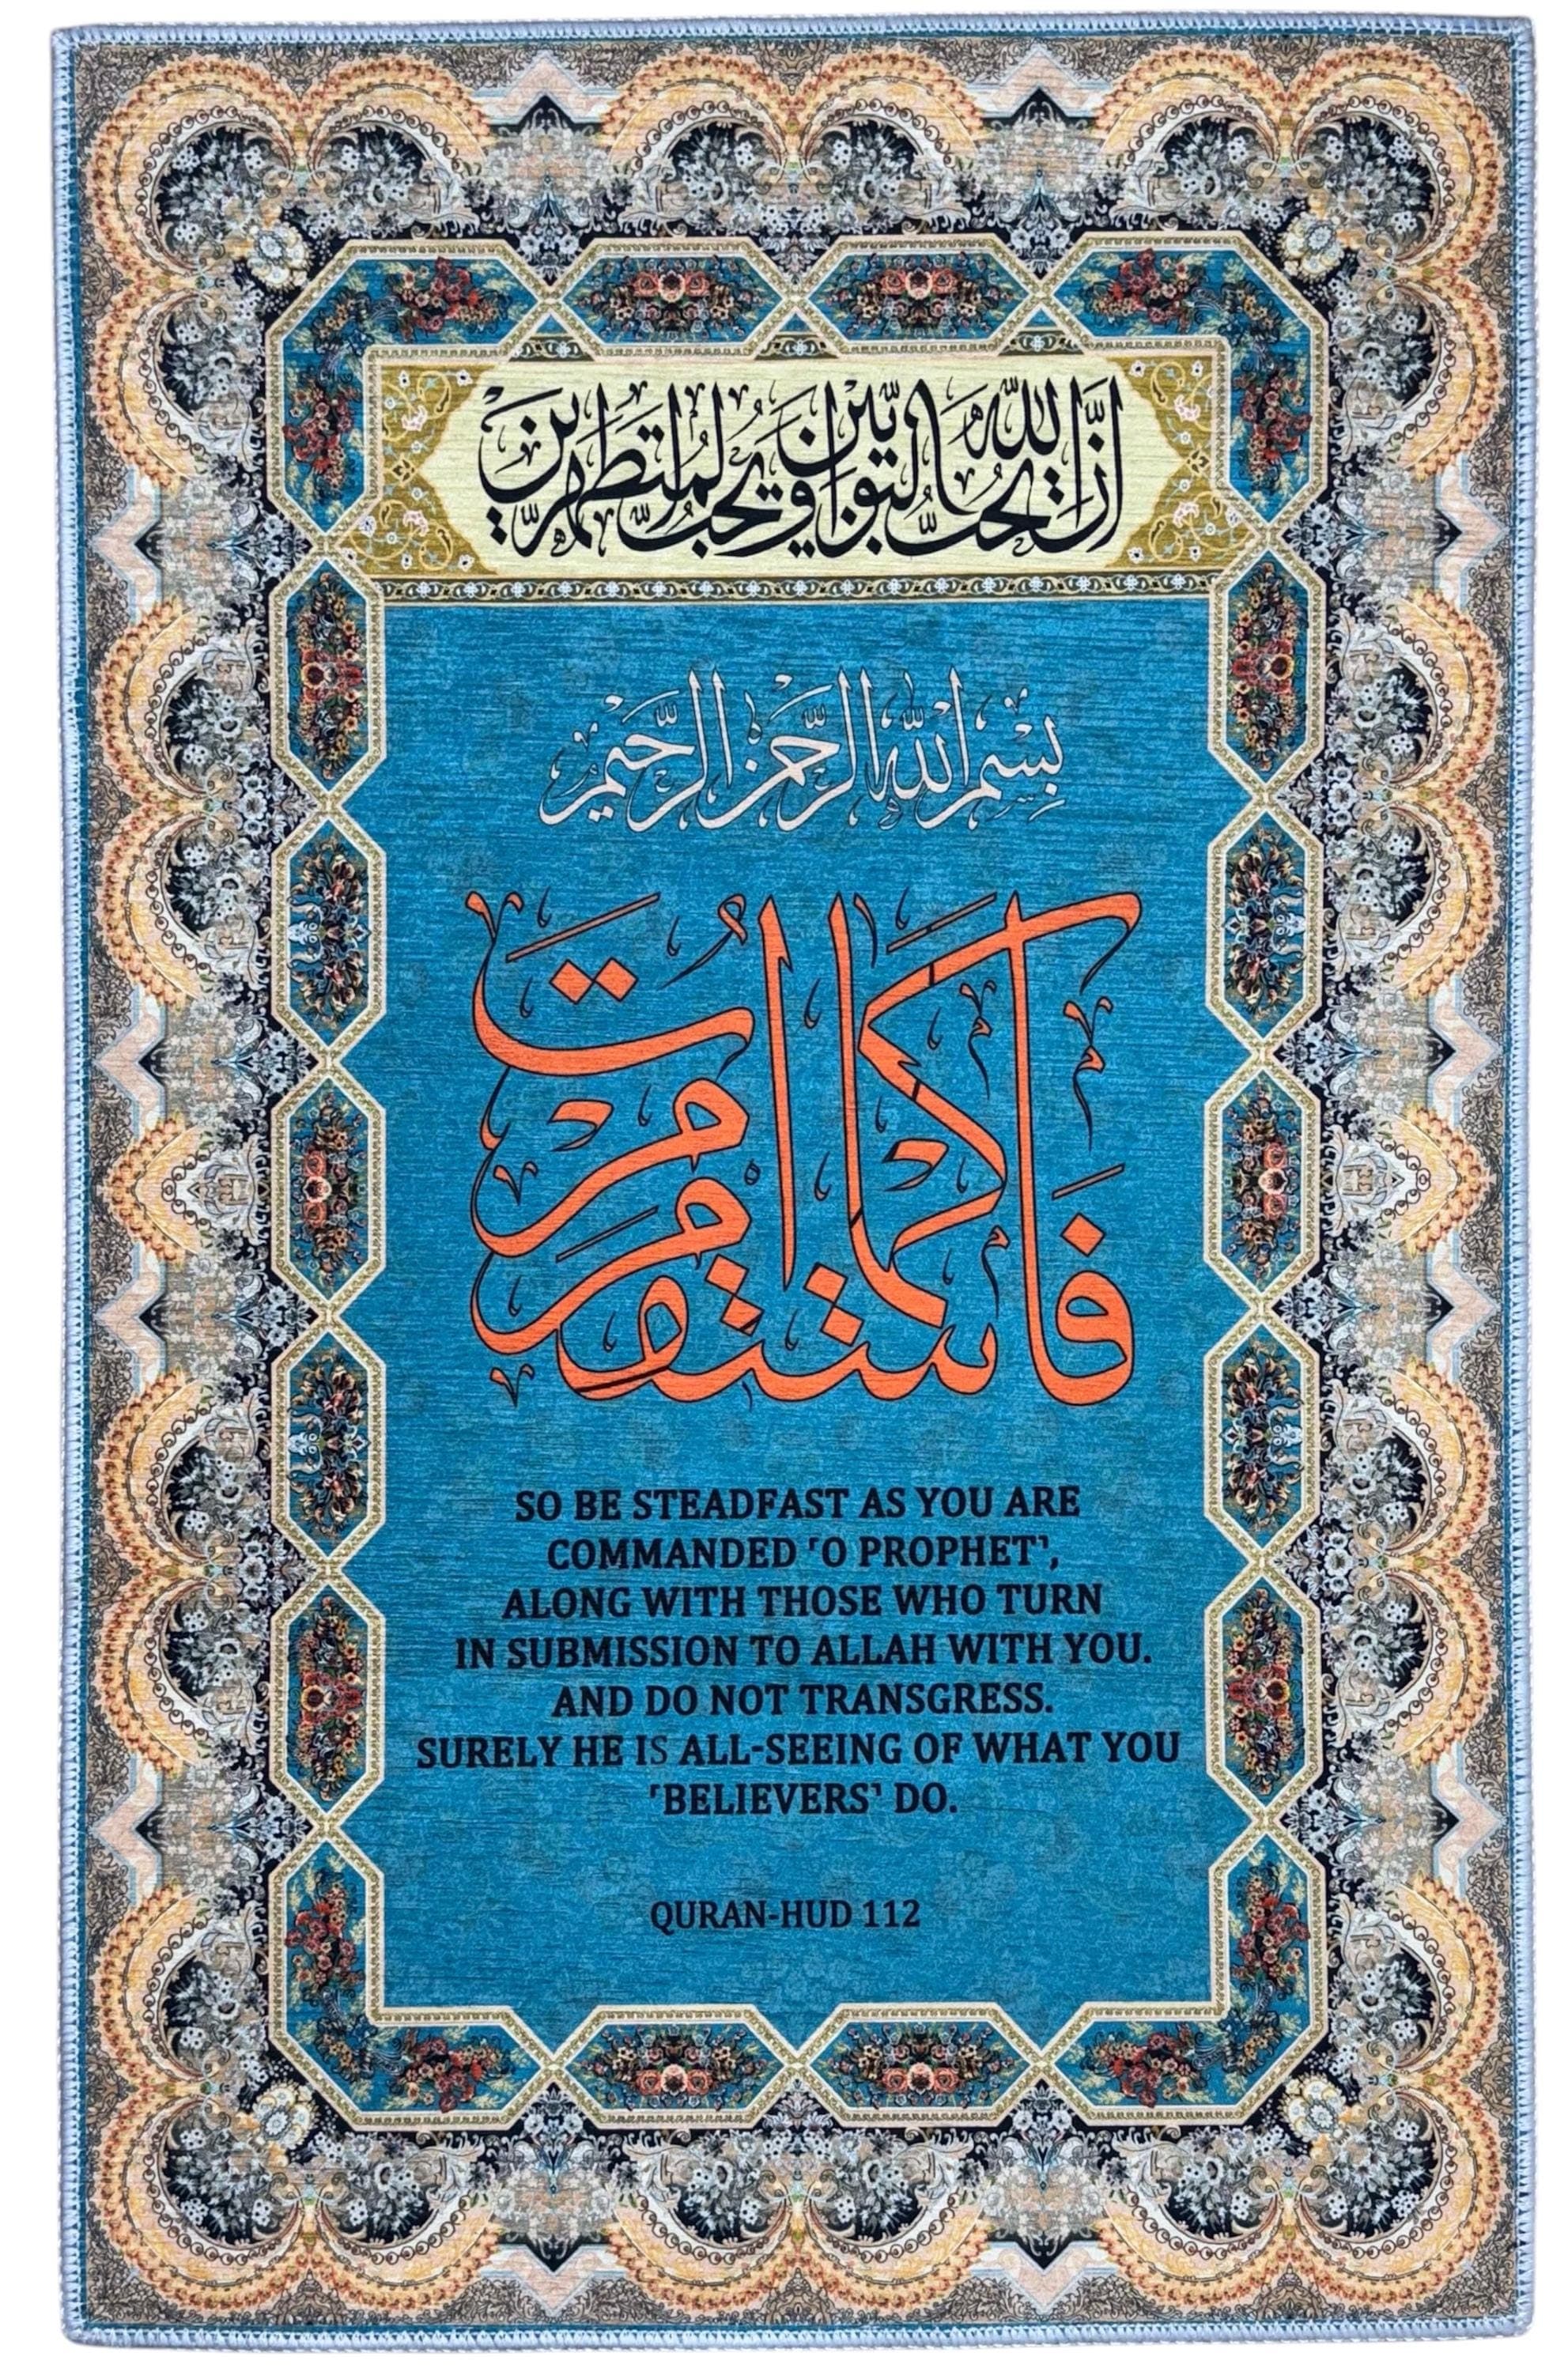 إِنَّ اللَّهَ يُحِبُّ التَّوَّابِينَ وَيُحِبُّ الْمُتَطَهِّرِينَ
بِسْمِ اللَّهِ الرَّحْمَٰنِ الرَّحِيمِ
فَاسْتَقِمْ كَمَا أُمِرْتَ
SO BE STEADFAST AS YOU ARE
COMMANDED ˹O PROPHET˺,
ALONG WITH THOSE WHO TURN
IN SUBMISSION TO ALLAH WITH YOU.
AND DO NOT TRANSGRESS.
SURELY HE IS ALL-SEEING OF WHAT YOU
˹BELIEVERS˺ DO.
QURAN-HUD 112